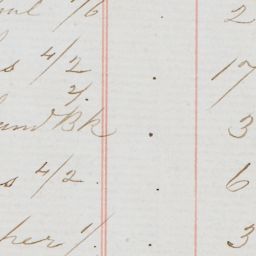 7/6 2
s 4/2 . 17
2/. Bk . 3
s 4/2 . 6
her 1/. . 3